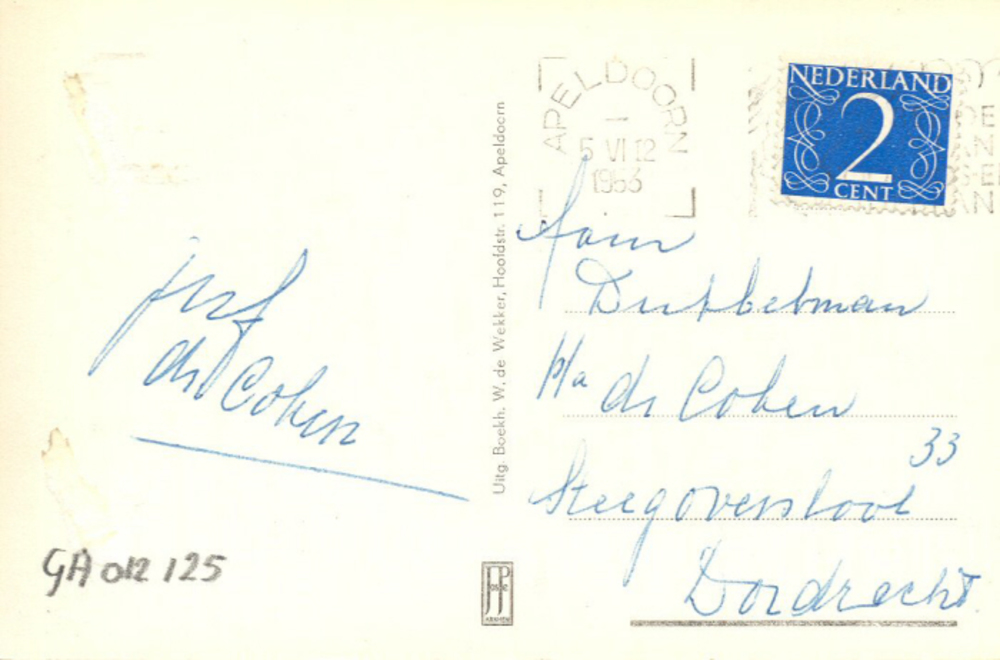 juf
dr Cohen
GA 012 125
Uitg. Boekh. W. de Wekker, Hoofdstr. 119, Apeldoorn
JosPé
ARNHEM
APELDOORN
5 VI 12
1953
NEDERLAND
2
CENT
Fam
Dubbelman
P/a dr Cohen
33
Steegoversloot
Dordrecht.